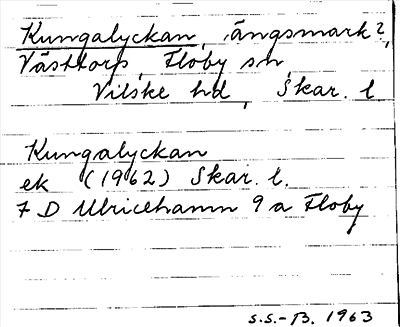 Kungalyckan, ängsmark?,
Västtorp, Floby sn,
Vilske hd, Skar. l.
Kungalyckan
ek (1962) Skar. l.
7 D Ulricehamn 9 a Floby
S.S.-B. 1963